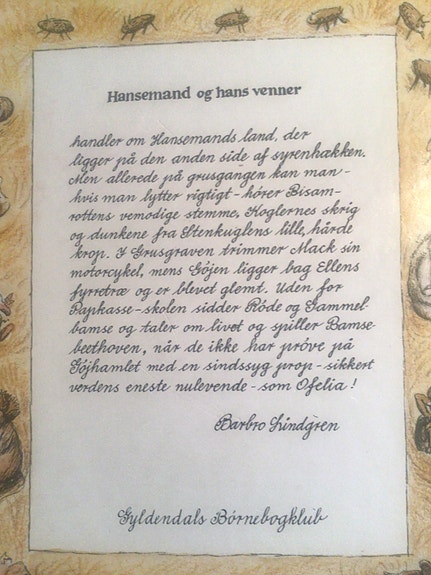 Hansemand og hans venner
handler om Hansemands land, der
ligger på den anden side af syrenhækken.
Men allerede på grusgangen kan man -
hvis man lytter rigtigt - hører Bisam-
rottens vemodige stemme, Koglernes skrig
og dunkene fra Stenkuglens lille, hårde
krop. I Grusgraven trimmer Mack sin
motorcykel, mens Göjen ligger bag Ellens
fyrretræ og er blevet glemt. Uden for
Papkasse-skolen sidder Röde og Gammel-
bamse og taler om livet og spiller Bamse-
beethoven, når de ikke har pröve på
Göjhamlet med en sindssyg prop - sikkert
verdens eneste nulevende - som Ofelia!
Barbro Lindgren
Gyldendals Börnebogklub